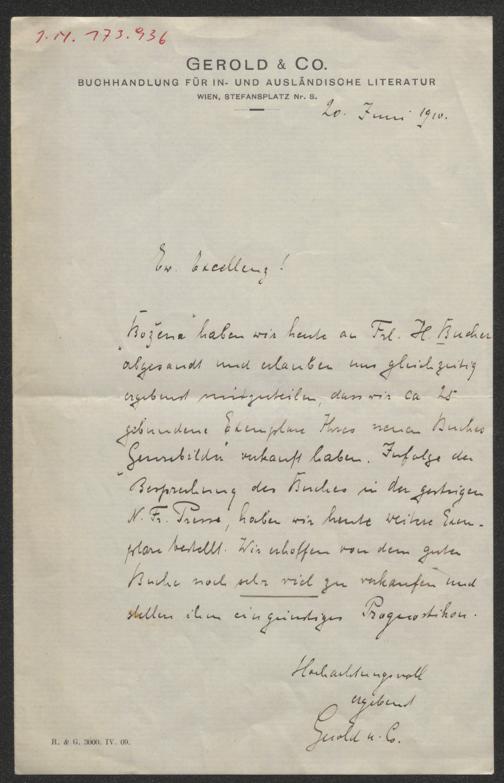 J.N. 173.936
GEROLD & CO.
BUCHHANDLUNG FÜR IN- UND AUSLÄNDISCHE LITERATUR
WIEN, STEFANSPLATZ Nr. 8.
20. Juni 1910.
Ew. Excellenz!
"Božena" haben wir heute an Frl. H. Bucher
abgesandt und erlauben uns gleichzeitig
ergebenst mitzuteilen, dass wir ca 25
gebundene Exemplare Ihres neuen Buches
"Genrebilder" verkauft haben. Infolge der
Besprechung des Buches in der gestrigen
N. Fr. Presse, haben wir heute weitere Exem-
plare bestellt. Wir erhoffen von dem guten
Buche noch sehr viel zu verkaufen und
stellen ihm ein günstiges Prognostikon.
Hochachtungsvoll
ergebenst
Gerold u. Co.
R. & G. 3000. IV. 09.